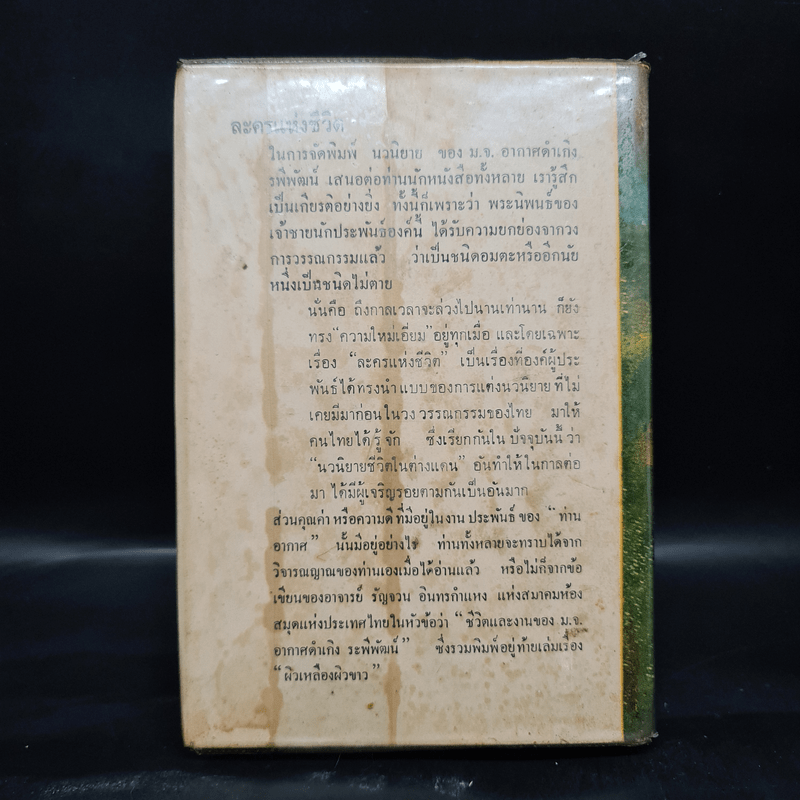 ละครแห่งชีวิต
ในการจัดพิมพ์ นวนิยาย ของ ม.จ. อากาศดำเกิง
รพีพัฒน์ เสนอต่อท่านนักหนังสือทั้งหลาย เรารู้สึก
เป็นเกียรติอย่างยิ่ง ทั้งนี้ก็เพราะว่า พระนิพนธ์ของ
เจ้าชายนักประพันธ์องค์นี้ ได้รับความยกย่องจากวง
การวรรณกรรมแล้ว ว่าเป็นชนิดอมตะหรืออีกนัย
หนึ่งเป็นชนิดไม่ตาย
นั่นคือ ถึงกาลเวลาจะล่วงไปนานเท่านาน ก็ยัง
ทรง “ความใหม่เอี่ยม” อยู่ทุกเมื่อ และโดยเฉพาะ
เรื่อง “ละครแห่งชีวิต” เป็นเรื่องที่องค์ผู้ประ
พันธ์ได้ทรงนำแบบของการแต่งนวนิยายที่ไม่
เคยมีมาก่อนในวงวรรณกรรมของไทย มาให้
คนไทยได้รู้จัก ซึ่งเรียกกันในปัจจุบันนี้ว่า
“นวนิยายชีวิตในต่างแดน” อันทำให้ในกาลต่อ
มา ได้มีผู้เจริญรอยตามกันเป็นอันมาก
ส่วนคุณค่า หรือความดีที่มีอยู่ในงานประพันธ์ ของ “ท่าน
อากาศ” นั้นมีอยู่อย่างไร ท่านทั้งหลายจะทราบได้จาก
วิจารณญาณของท่านเองเมื่อได้อ่านแล้ว หรือไม่ก็จากข้อ
เขียนของอาจารย์ รัญจวน อินทรกำแหง แห่งสมาคมห้อง
สมุดแห่งประเทศไทยในหัวข้อว่า “ชีวิตและงานของ ม.จ.
อากาศดำเกิง ระพีพัฒน์” ซึ่งรวมพิมพ์อยู่ท้ายเล่มเรื่อง
“ผิวเหลืองผิวขาว”